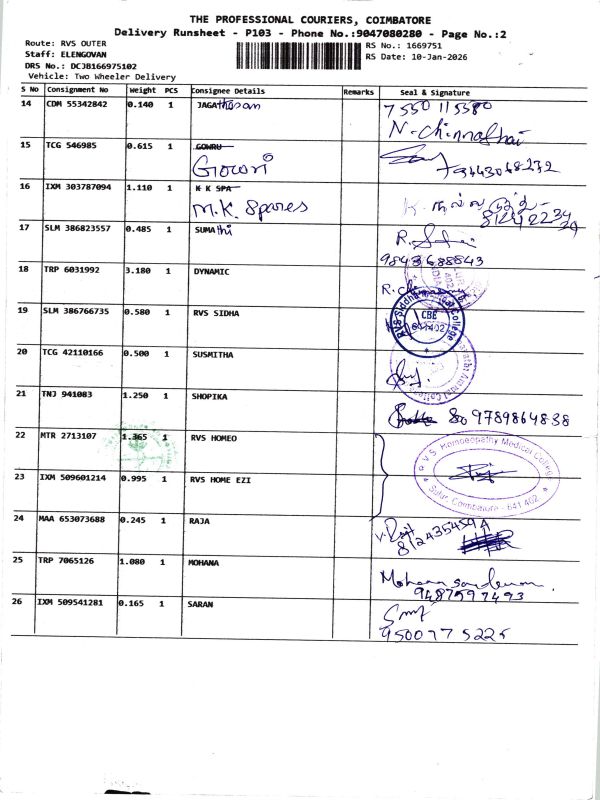 THE PROFESSIONAL COURIERS, COIMBATORE
Delivery Runsheet - P103 - Phone No.:9047080280 - Page No.:2
Route: RVS OUTER
Staff: ELENGOVAN
DRS No.: DCJB166975102
Vehicle: Two Wheeler Delivery
RS No.: 1669751
RS Date: 10-Jan-2026
S No Consignment No Weight PCS Consignee Details Remarks Seal & Signature
14 CDM 55342842 0.140 1 JAGAthasan 7550115580
N. Chinnathai
15 TCG 546985 0.615 1 GOWRU
Gowri 7943068272
16 IXM 303787094 1.110 1 K K SPA
M.K. Spares
17 SLM 386823557 0.485 1 SUMAthi
9843688843
18 TRP 6031992 3.180 1 DYNAMIC
19 SLM 386766735 0.580 1 RVS SIDHA
RVS Siddha Medical College
CBE
641 402
20 TCG 42110166 0.500 1 SUSMITHA
21 TNJ 941083 1.250 1 SHOPIKA
9789864838
22 MTR 2713107 1.365 1 RVS HOMEO
R.V.S. Homoeopathy Medical College
Sulur, Coimbatore - 641 402
23 IXM 509601214 0.995 1 RVS HOME EZI
24 MAA 653073688 0.245 1 RAJA
25 TRP 7065126 1.080 1 MOHANA
Mohana
9487597493
26 IXM 509541281 0.165 1 SARAN
9500775225